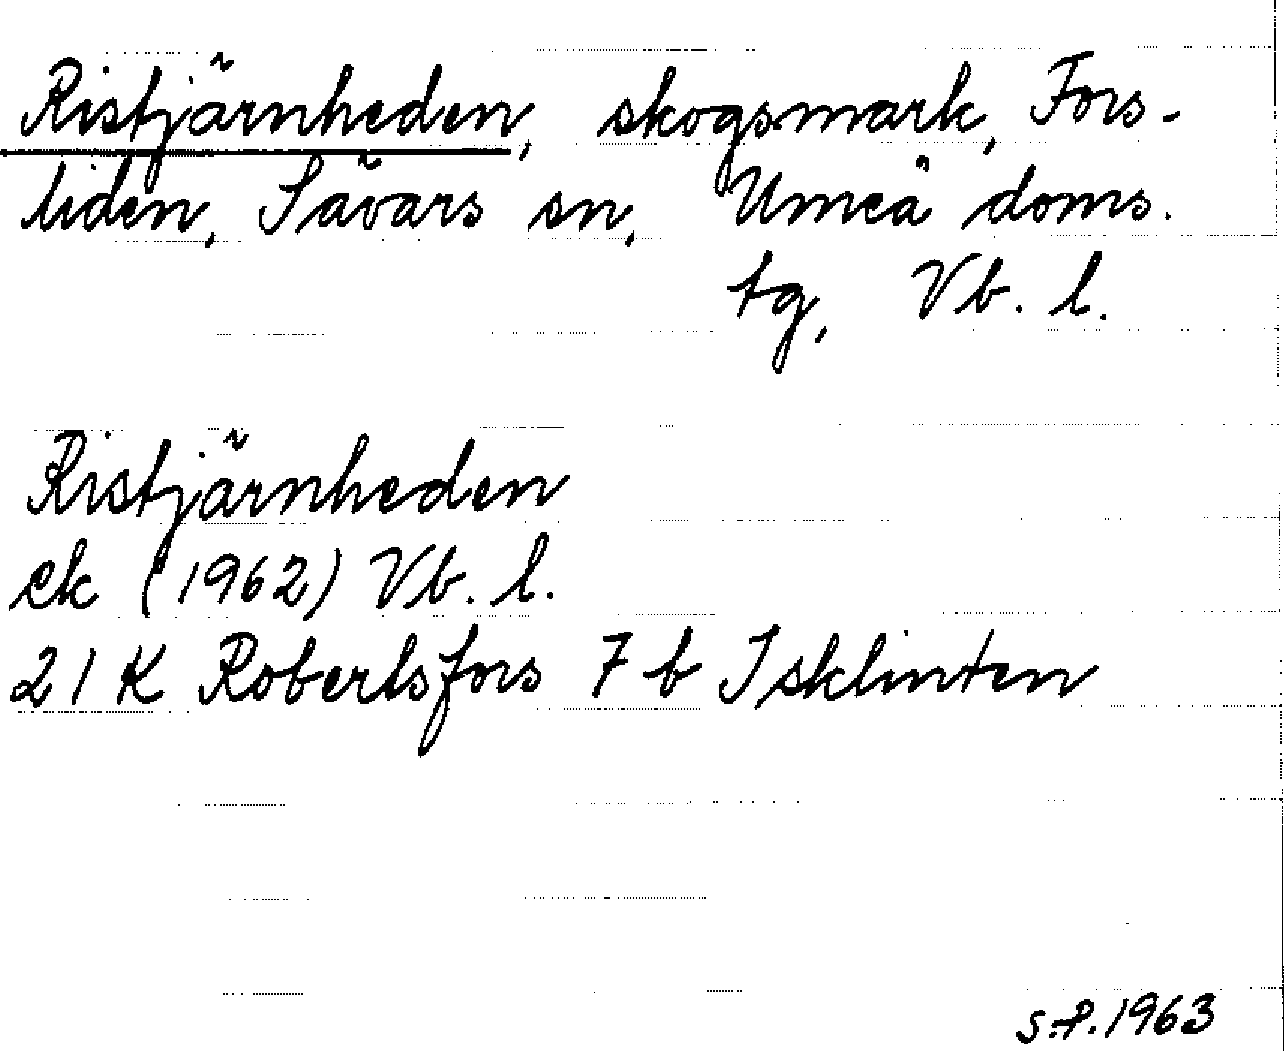 Ristjärnheden, skogsmark, Fors-
liden, Sävars sn, Umeå doms.
tg, Vb. l.
Ristjärnheden
ek (1962) Vb. l.
21 K Robertsfors 7 b Isklinten
s.f. 1963